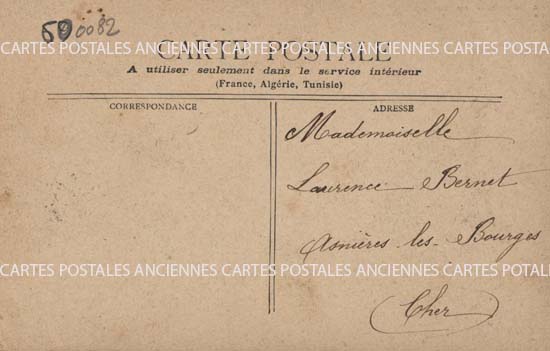 500082
CARTES POSTALES ANCIENNES CARTES POSTALES ANCIENNES CARTES POTALES
CARTE POSTALE
A utiliser seulement dans le service intérieur
(France, Algérie, Tunisie)
CORRESPONDANCE
ADRESSE
Mademoiselle
Laurence Bernet
Asnières-les-Bourges
CARTES POSTALES ANCIENNES CARTES POSTALES ANCIENNES CARTES POTALES
(Cher)